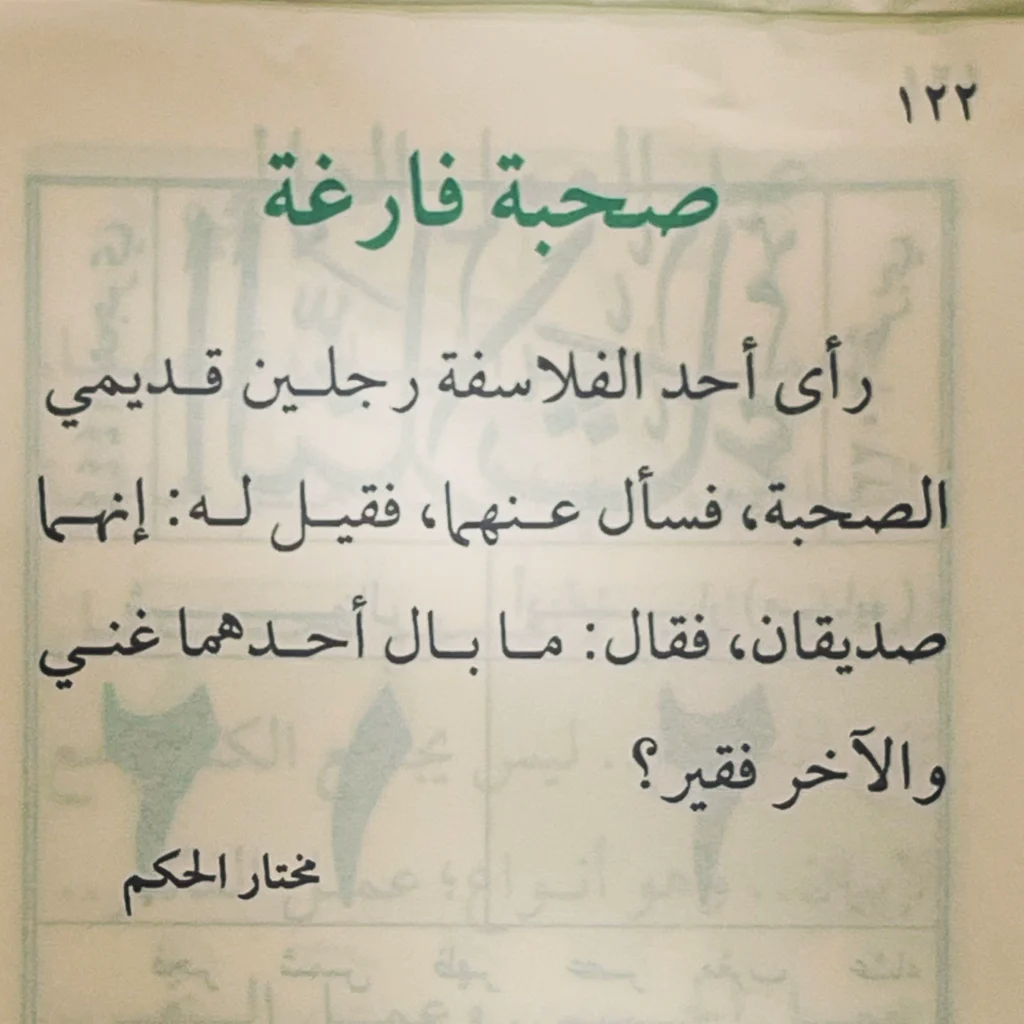 ١٢٢
صحبة فارغة
رأى أحد الفلاسفة رجلين قديمي
الصحبة، فسأل عنهما، فقيل له: إنهما
صديقان، فقال: ما بال أحدهما غني
والآخر فقير؟
مختار الحكم